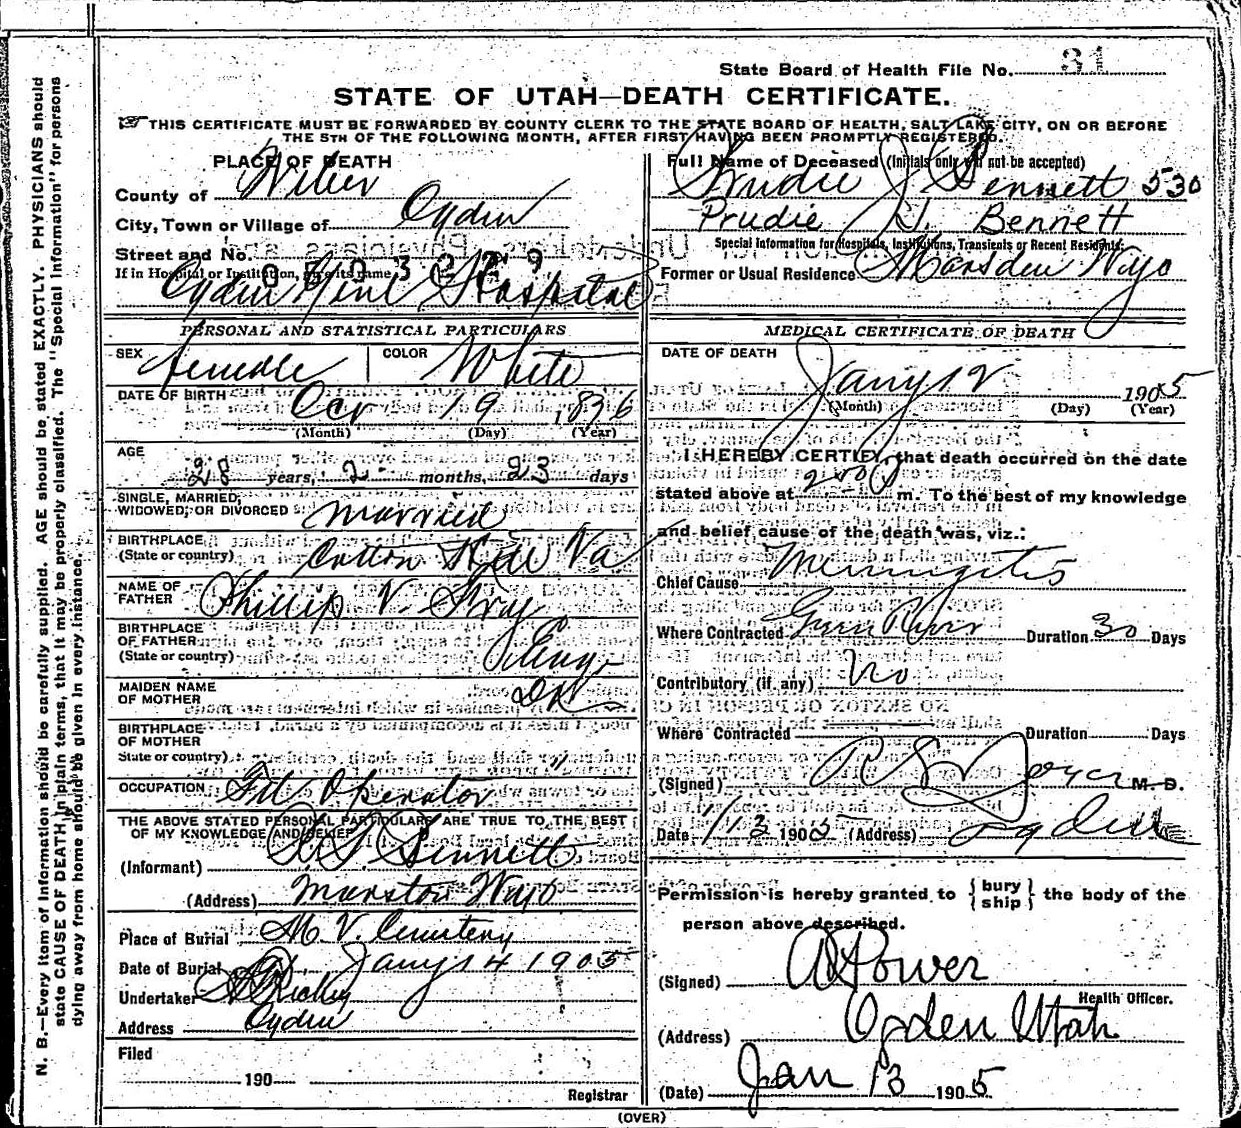 State Board of Health File No. 31
STATE OF UTAH—DEATH CERTIFICATE.
THIS CERTIFICATE MUST BE FORWARDED BY COUNTY CLERK TO THE STATE BOARD OF HEALTH, SALT LAKE CITY, ON OR BEFORE
THE 5TH OF THE FOLLOWING MONTH, AFTER FIRST HAVING BEEN PROMPTLY REGISTERED.
PLACE OF DEATH
County of Weber
City, Town or Village of Ogden
Street and No.
If in Hospital or Institution, give its name
Ogden Genl Hospital
PERSONAL AND STATISTICAL PARTICULARS
SEX female COLOR White
DATE OF BIRTH 19
(Month) (Day) (Year)
AGE
28 years, 2 months, 23 days
SINGLE, MARRIED,
WIDOWED, OR DIVORCED married
BIRTHPLACE
(State or country) Cotton Va
NAME OF
FATHER Phillip V.
BIRTHPLACE
OF FATHER
(State or country) Eng
MAIDEN NAME
OF MOTHER DK
BIRTHPLACE
OF MOTHER
State or country) "
OCCUPATION Operator
THE ABOVE STATED PERSONAL PARTICULARS ARE TRUE TO THE BEST
OF MY KNOWLEDGE AND BELIEF
(Informant) Bennett
(Address) Marston Wyo
Place of Burial M. V. Cemetery
Date of Burial Jany 14 1905
Undertaker
Address Ogden
Filed
190
Registrar
Full Name of Deceased (Initials only will not be accepted)
Prudie J Bennett 530
Prudie J. Bennett
Special Information for Hospitals, Institutions, Transients or Recent Residents.
Former or Usual Residence Wyo
MEDICAL CERTIFICATE OF DEATH
DATE OF DEATH
Jany 12 1905
(Month) (Day) (Year)
I HEREBY CERTIFY, that death occurred on the date
stated above at m. To the best of my knowledge
and belief cause of the death was, viz.:
Chief Cause Meningitis
Where Contracted Green River Duration 30 Days
Contributory (if any) No
Where Contracted Duration Days
(Signed) Joyce M. D.
Date 1/13 1905 (Address) Ogden
Permission is hereby granted to { bury ship } the body of the
person above described.
(Signed) A Power
Health Officer.
(Address) Ogden Utah
(Date) Jan 13 1905
(OVER)
N. B.—Every item of information should be carefully supplied. AGE should be stated EXACTLY. PHYSICIANS should
state CAUSE OF DEATH in plain terms, that it may be properly classified. The "Special Information" for persons
dying away from home should be given in every instance.